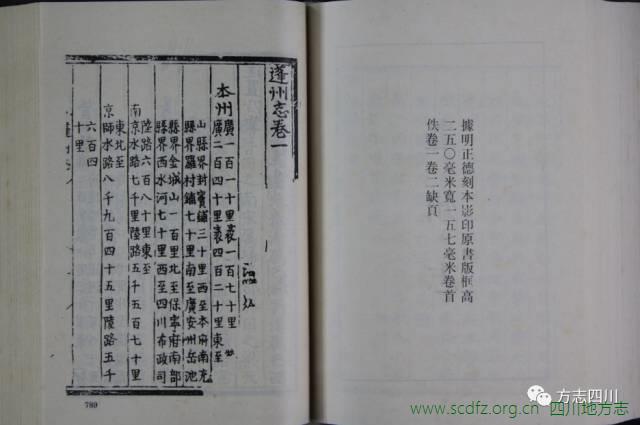 據明正德刻本影印原書版框高
二五〇毫米寬一五七毫米卷首
佚卷一卷二缺頁
蓬州志卷一
本州廣一百一十里袤一百七十里
廣二百四十里袤四百二十里東至
山縣界封竇鋪三十里西至本府南充
縣界羅村鋪七十里南至廣安州岳池
縣界金城山一百里北至保寧府南部
縣界西水河七十里西至四川布政司
陸路六百八十里東至
南京水路七千里陸路五千五百七十里
東北至
京師水路八千九百四十五里陸路五千
六百四
十里
789
方志四川
www.scdfz.org.cn 四川地方志